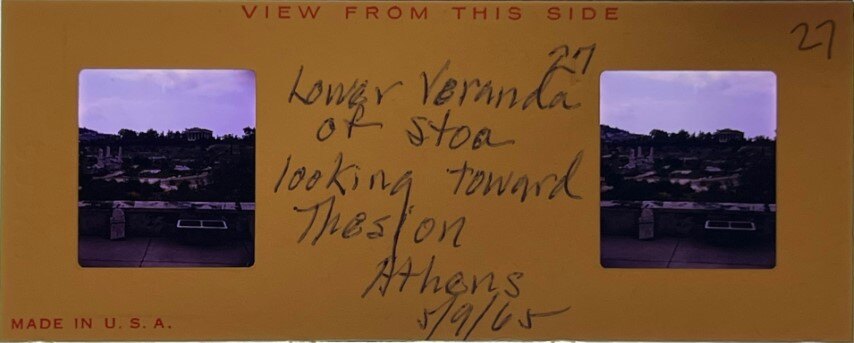 VIEW FROM THIS SIDE
27
27
Lower Veranda
of Stoa
looking toward
Thesion
Athens
5/9/65
MADE IN U.S.A.